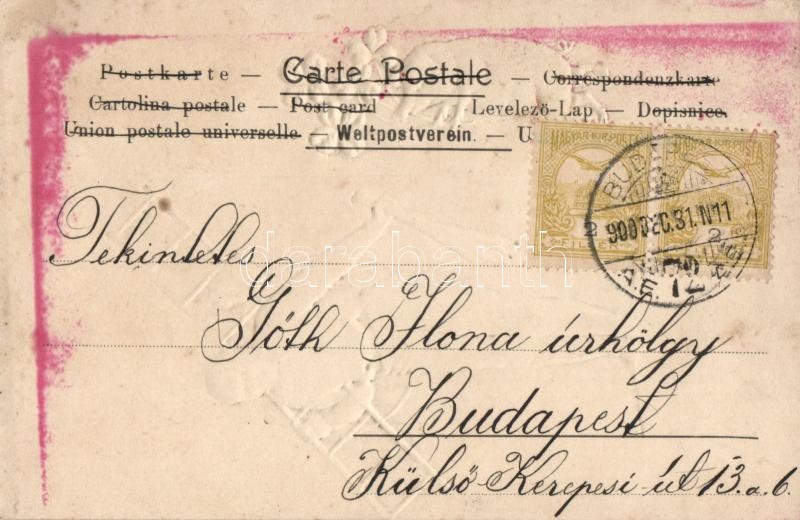 Postkarte — Carte Postale — Correspondenzkarte
Cartolina postale — Post card Levelező-Lap — Dopisnice.
Union postale universelle. — Weltpostverein. — U
MAGYAR KIR. POSTA
BUDAPEST
900 DEC. 31. N11
72
Tekintetes
Góth Ilona úrhölgy
Budapest
Külső Kerepesi út 13. a. 6.
darabanth